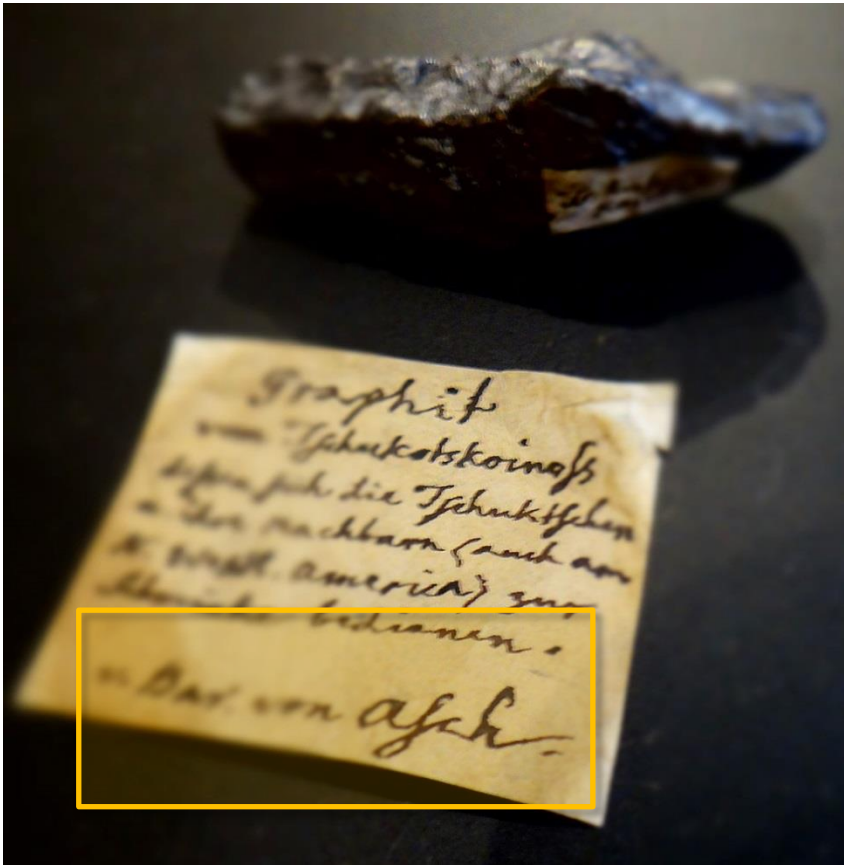 Graphit
vom Tschukotskoinoss
dessen sich die Tschuktschen
u. ihre Nachbarn (auch am
N. West. America) zur
Schminke bedienen.
v. Bar. von Asch.